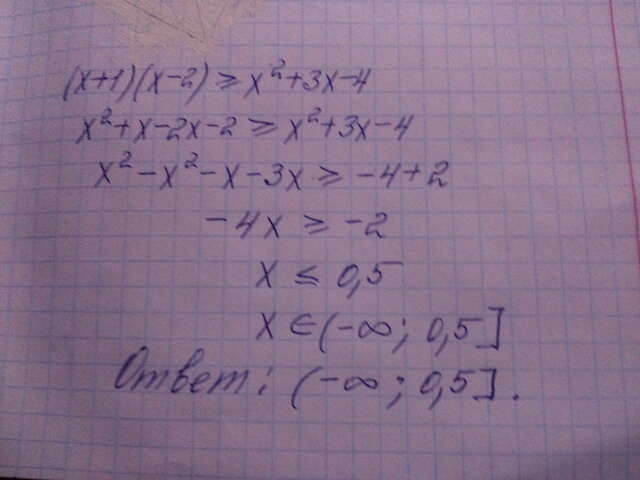 (x+1)(x-2) ⩾ x²+3x-4
x²+x-2x-2 ⩾ x²+3x-4
x²-x²-x-3x ⩾ -4+2
-4x ⩾ -2
x ≤ 0,5
x ∈ (-∞; 0,5]
Ответ: (-∞; 0,5].